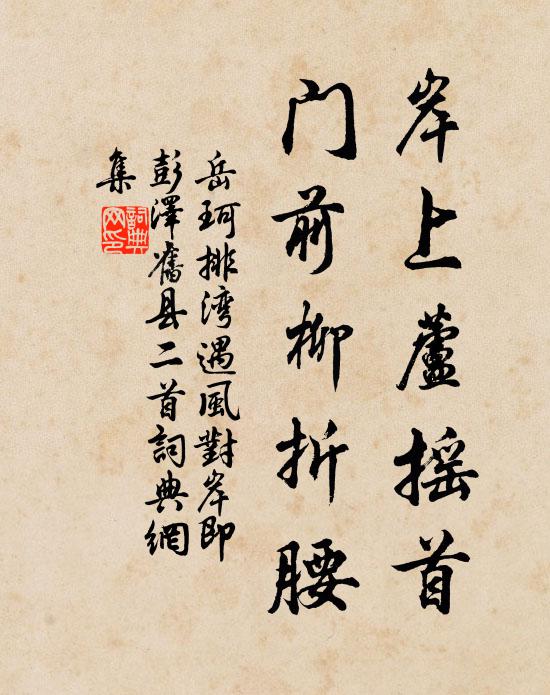 岸上蘆摇首
门前柳折腰
岳珂排湾遇風對岸即
彭澤舊县二首詞典網
集
詞典网印